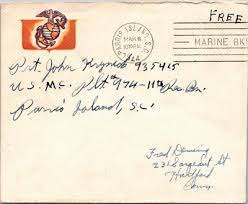 FREE
PARRIS ISLAND, S.C.
MAR 8
1944
MARINE BKS
Pvt. John 935415
U.S. M.C. Plt 974-11th
Parris Island, S.C.
Fred
231 Sargeant St
Hartford
Conn.